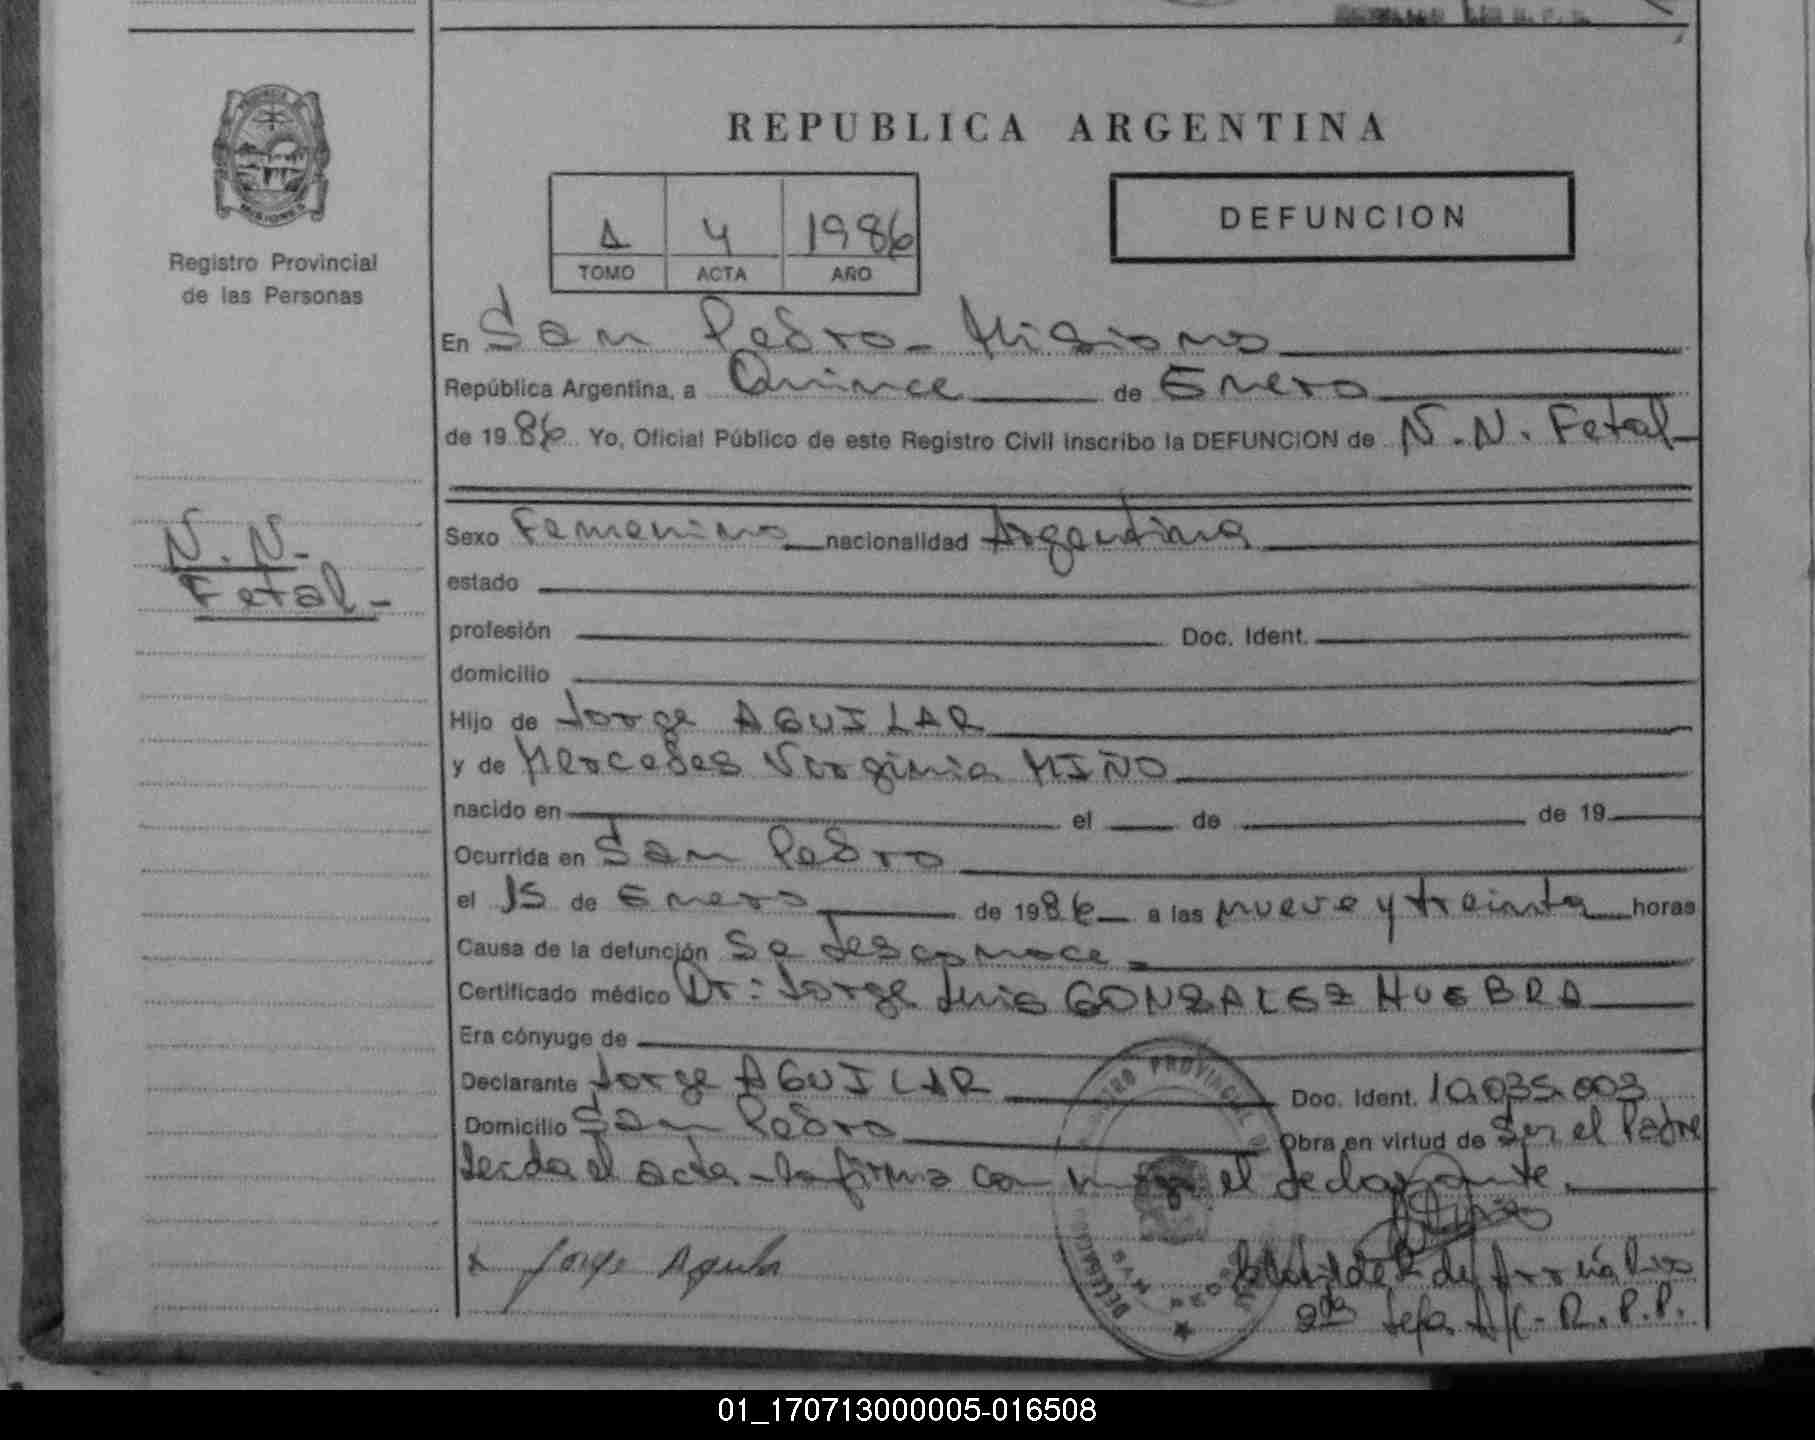 REPUBLICA ARGENTINA
PROVINCIA DE
MISIONES
Registro Provincial
de las Personas
1 4 1986
TOMO ACTA AÑO
DEFUNCION
En San Pedro - Misiones
República Argentina, a Quince de Enero
de 1986 Yo, Oficial Público de este Registro Civil inscribo la DEFUNCION de N.N. Fetal
N.N.
Fetal
Sexo Femenino nacionalidad Argentina
estado
profesión Doc. Ident.
domicilio
Hijo de Jorge AGUILAR
y de Mercedes Virginia MIÑO
nacido en el de de 19
Ocurrida en San Pedro
el 15 de Enero de 1986 a las nueve y treinta horas
Causa de la defunción Se desconoce.
Certificado médico Dr: Jorge Luis GONZALEZ HUEBRA
Era cónyuge de
Declarante Jorge AGUILAR Doc. Ident. 10.035.003
Domicilio San Pedro Obra en virtud de Ser el Padre
Leida el acta - la firma con migo el declarante.
x Jorge Aguila
2da Jefa A/C - R.P.P.
01_170713000005-016508